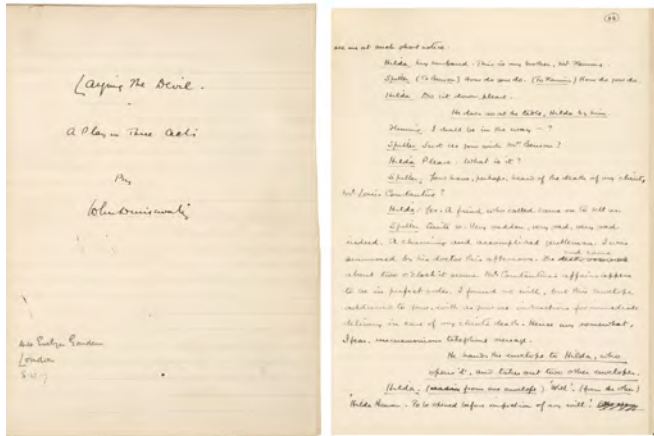 Laying The Devil.
A Play in Three Acts
By
John Drinkwater
Evelyn Gardens
London
S.W.7
see me at such short notice.
Hilda. My husband. This is my brother, Mr Fleming.
Spiller. (To Benson) How do you do. (To Fleming) How do you do.
Hilda. Do sit down, please.
He does so at the table, Hilda by him.
Fleming. I shall be in the way — ?
Spiller. Just as you wish. Mrs Benson?
Hilda. Please. What is it?
Spiller. You have, perhaps, heard of the death of my client,
Mr Louis Constantine?
Hilda. Yes. A friend who called came in to tell us.
Spiller. Quite so. Very sudden, very sad, very sad
indeed. A charming and accomplished gentleman. I was
summoned by his doctor this afternoon. and came
about two o'clock it seems. Mr Constantine's affairs appear
to be in perfect order. I found no will, but this envelope
addressed to you, with as you see instructions for immediate
delivery in case of my client's death. Hence my somewhat,
I fear, unceremonious telephone message.
He hands the envelope to Hilda, who
opens it, and takes out two other envelopes.
Hilda. (reading from one envelope) 'Will'. (from the other)
'Hilda Benson. To be opened before inspection of my will.'